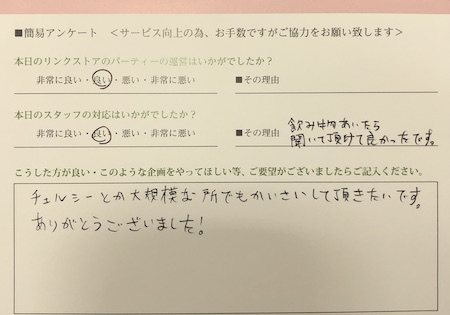 ■簡易アンケート ＜サービス向上の為、お手数ですがご協力をお願い致します＞
本日のリンクストアのパーティーの運営はいかがでしたか？
非常に良い・良い・悪い・非常に悪い ■その理由
本日のスタッフの対応はいかがでしたか？
非常に良い・良い・悪い・非常に悪い ■その理由 飲み物あいたら
聞いて頂けて良かったです。
こうした方が良い・このような企画をやってほしい等、ご要望がございましたらご記入ください。
チェルシーとか大規模な所でもかいさいして頂きたいです。
ありがとうございました！